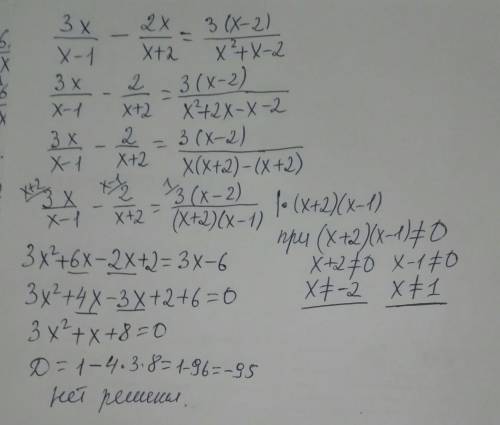 3x/(x-1) - 2x/(x+2) = 3(x-2)/(x²+x-2)
3x/(x-1) - 2/(x+2) = 3(x-2)/(x²+2x-x-2)
3x/(x-1) - 2/(x+2) = 3(x-2)/(x(x+2)-(x+2))
x+2/ 3x/(x-1) - x-1/ 2/(x+2) = 1/ 3(x-2)/((x+2)(x-1)) |·(x+2)(x-1)
при (x+2)(x-1)≠0
x+2≠0 x-1≠0
x≠-2 x≠1
3x²+6x-2x+2=3x-6
3x²+4x-3x+2+6=0
3x²+x+8=0
D=1-4·3·8=1-96=-95
нет решения.